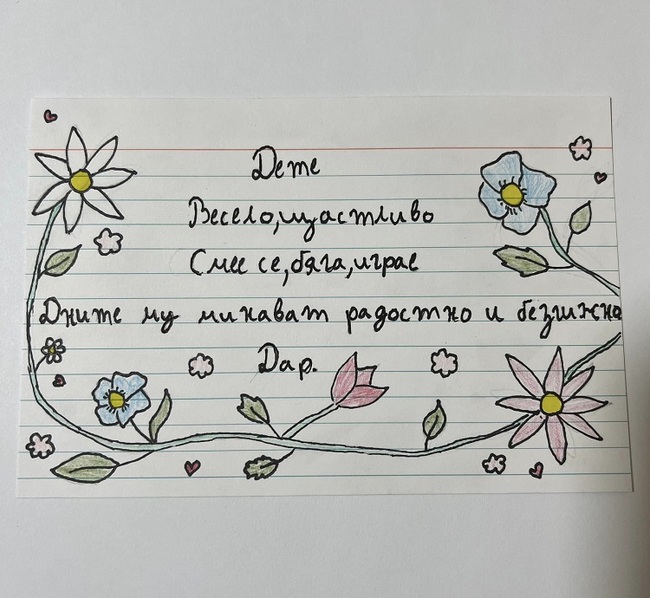 Дете
Весело,щастливо
Смее се,бяга,играе
Дните му минават радостно и безгижно
Дар.